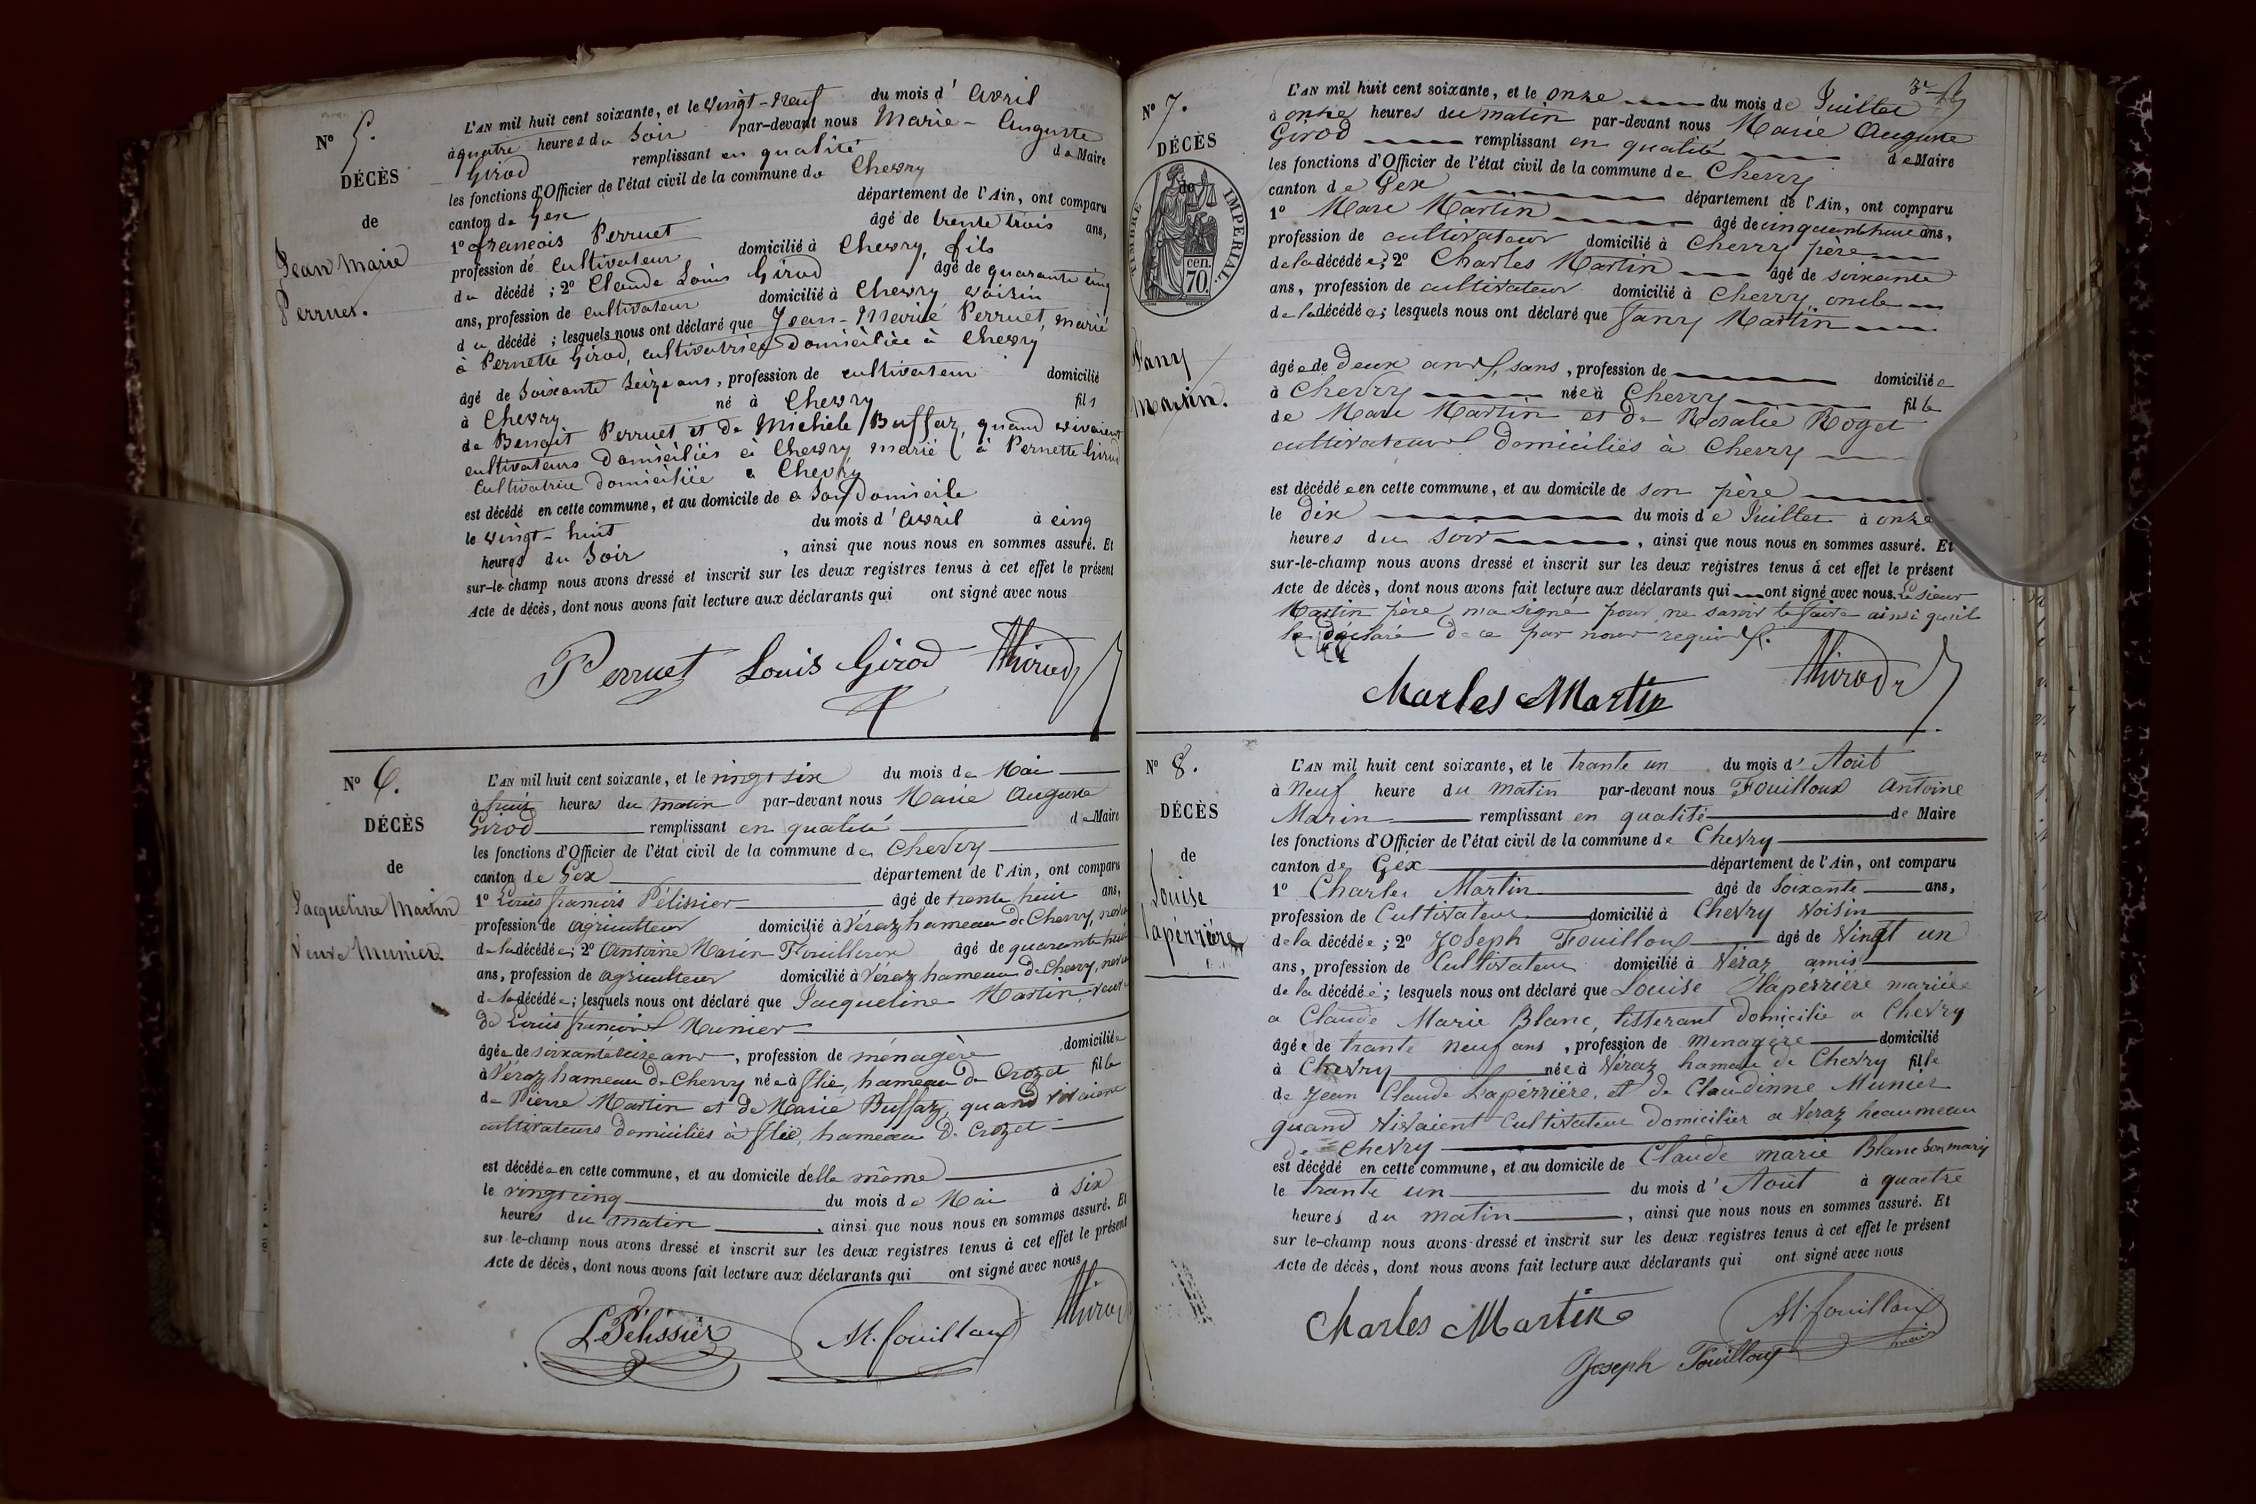 N° 5.
DÉCÈS
de
Jean Marie
Perruet.
L'AN mil huit cent soixante, et le vingt-neuf du mois d'Avril
à quatre heures du Soir par-devant nous Marie-Auguste
Girod remplissant en qualité de Maire
les fonctions d'Officier de l'état civil de la commune de Chevry
canton de Gex département de l'Ain, ont comparu
1° francois Perruet âgé de trente trois ans,
profession de Cultivateur domicilié à Chevry, fils
du décédé ; 2° Claude Louis Girod âgé de quarante cinq
ans, profession de cultivateur domicilié à Chevry voisin
du décédé ; lesquels nous ont déclaré que Jean-Marie Perruet, marié
à Pernette Girod, cultivatrice domiciliée à Chevry
âgé de Soixante Seize ans, profession de cultivateur domicilié
à Chevry né à Chevry fils
de Benoit Perruet et de Michele Buffaz, quand vivaient
cultivateurs domiciliés à Chevry marié à Pernette Girod
Cultivatrice domiciliée à Chevry
est décédé en cette commune, et au domicile de à Son Domicile
le vingt-huit du mois d'avril à cinq
heures du Soir , ainsi que nous nous en sommes assuré. Et
sur-le-champ nous avons dressé et inscrit sur les deux registres tenus à cet effet le présent
Acte de décès, dont nous avons fait lecture aux déclarants qui ont signé avec nous
Perruet Louis Girod
N° 6.
DÉCÈS
de
Jacqueline Martin
Veuve Munier.
L'AN mil huit cent soixante, et le vingt six du mois de Mai
à huit heures du matin par-devant nous Marie Auguste
Girod remplissant en qualité de Maire
les fonctions d'Officier de l'état civil de la commune de Chevry
canton de Gex département de l'Ain, ont comparu
1° Louis francois Pélissier âgé de trente huit ans,
profession de agriculteur domicilié à Véraz hameau de Chevry, neveu
de la décédée ; 2° Antoine Marin Fouilloux âgé de quarante huit
ans, profession de agriculteur domicilié à Véraz hameau de Chevry, neveu
de la décédée ; lesquels nous ont déclaré que Jacqueline Martin, veuve
de Louis francois Munier
âgée de soixante seize ans , profession de ménagère domiciliée
à Véraz hameau de Chevry née à flie, hameau de Crozet fille
de Pierre Martin et de Marie Buffaz, quand vivaient
cultivateurs domiciliés à flie, hameau de Crozet
est décédée en cette commune, et au domicile d'elle même
le vingt cinq du mois de Mai à six
heures du matin , ainsi que nous nous en sommes assuré. Et
sur-le-champ nous avons dressé et inscrit sur les deux registres tenus à cet effet le présent
Acte de décès, dont nous avons fait lecture aux déclarants qui ont signé avec nous
L. Pélissier M. fouilloux
N° 7.
DÉCÈS
de
TIMBRE IMPÉRIAL
70 cen.
Fany
Martin.
L'AN mil huit cent soixante, et le onze du mois de Juillet
à onze heures du matin par-devant nous Marie Auguste
Girod remplissant en qualité de Maire
les fonctions d'Officier de l'état civil de la commune de Chevry
canton de Gex département de l'Ain, ont comparu
1° Marc Martin âgé de cinquante huit ans,
profession de cultivateur domicilié à Chevry père
de la décédée ; 2° Charles Martin âgé de soixante
ans, profession de cultivateur domicilié à Chevry, oncle
de la décédée ; lesquels nous ont déclaré que fany Martin
âgée de deux ans, sans , profession de domiciliée
à Chevry née à Chevry fille
de Marc Martin et de Rosalie Roget
cultivateurs domiciliés à Chevry
est décédée en cette commune, et au domicile de son père
le dix du mois de Juillet à onze
heures du soir , ainsi que nous nous en sommes assuré. Et
sur-le-champ nous avons dressé et inscrit sur les deux registres tenus à cet effet le présent
Acte de décès, dont nous avons fait lecture aux déclarants qui ont signé avec nous. Le sieur
Martin père, n'a signé pour ne savoir le faire ainsi qu'il
l'a déclaré de ce par nous requis.
Charles Martin
N° 8.
DÉCÈS
de
Louise
Lapérrière
L'AN mil huit cent soixante, et le trante un du mois d'Août
à Neuf heure du matin par-devant nous Fouilloux Antoine
Marin remplissant en qualité de Maire
les fonctions d'Officier de l'état civil de la commune de Chevry
canton de Géx département de l'Ain, ont comparu
1° Charles Martin âgé de Soixante ans,
profession de Cultivateur domicilié à Chevry Voisin
de la décédée ; 2° Joseph Fouilloux âgé de Vingt un
ans, profession de Cultivateur domicilié à Véraz amis
de la décédée ; lesquels nous ont déclaré que Louise Lapérrière mariée
a Claude Marie Blanc, tisserant domicilié a Chevry
âgée de trante neuf ans , profession de Menagère domicilié
à Chevry née à Véraz hameau de Chevry fille
de Jean Claude Lapérrière, et de Claudinne Munier
quand Vivaient Cultivateur domicilier a Veraz heaumeau
de Chevry
est décédé en cette commune, et au domicile de Claude marie Blanc son mary
le trante un du mois d'Août à quactre
heures du matin , ainsi que nous nous en sommes assuré. Et
sur le-champ nous avons dressé et inscrit sur les deux registres tenus à cet effet le présent
Acte de décès, dont nous avons fait lecture aux déclarants qui ont signé avec nous
Charles Martin M. fouilloux
Joseph Fouilloux maire